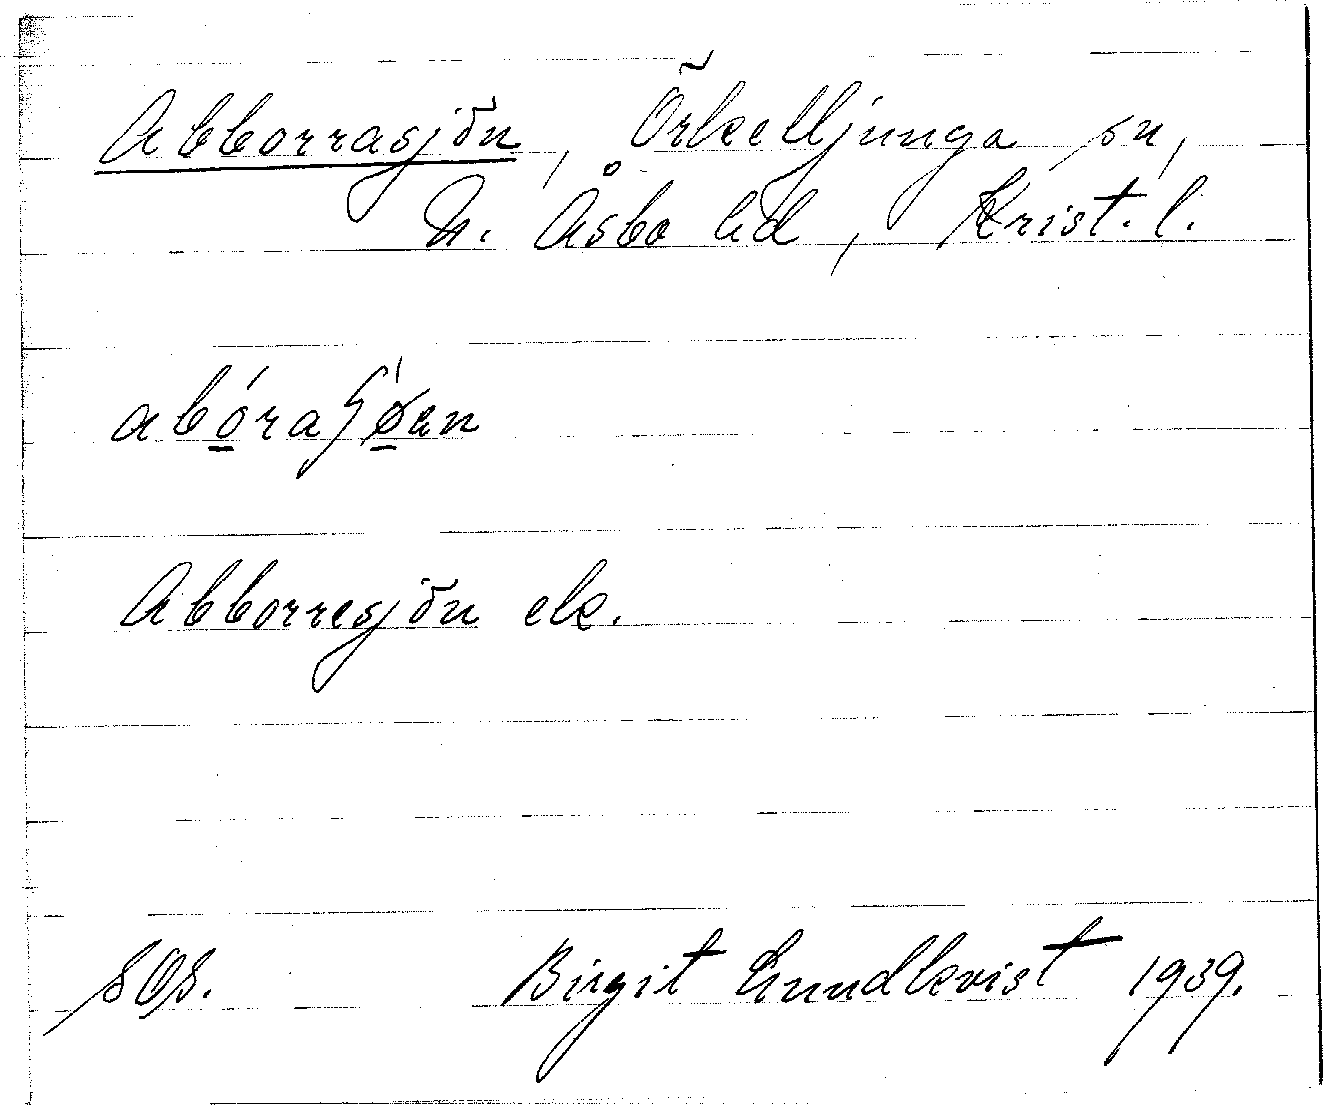 Abborrasjön, Örkelljunga sn,
N. Åsbo hd, Krist. l.
Abborresjön ek.
SOS. Birgit Lundkvist 1939.